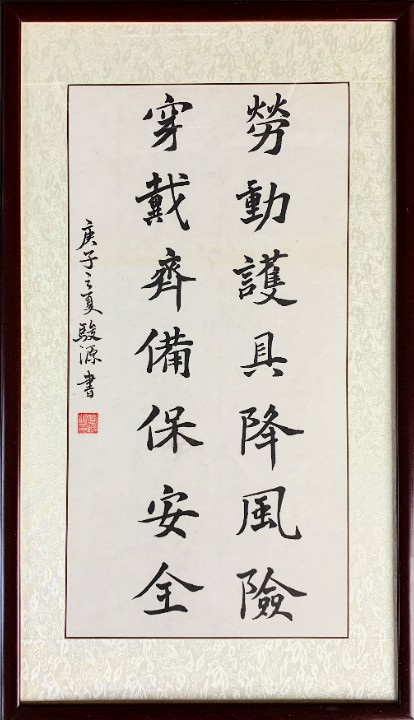 勞動護具降風險
穿戴齊備保安全
庚子之夏駿源書